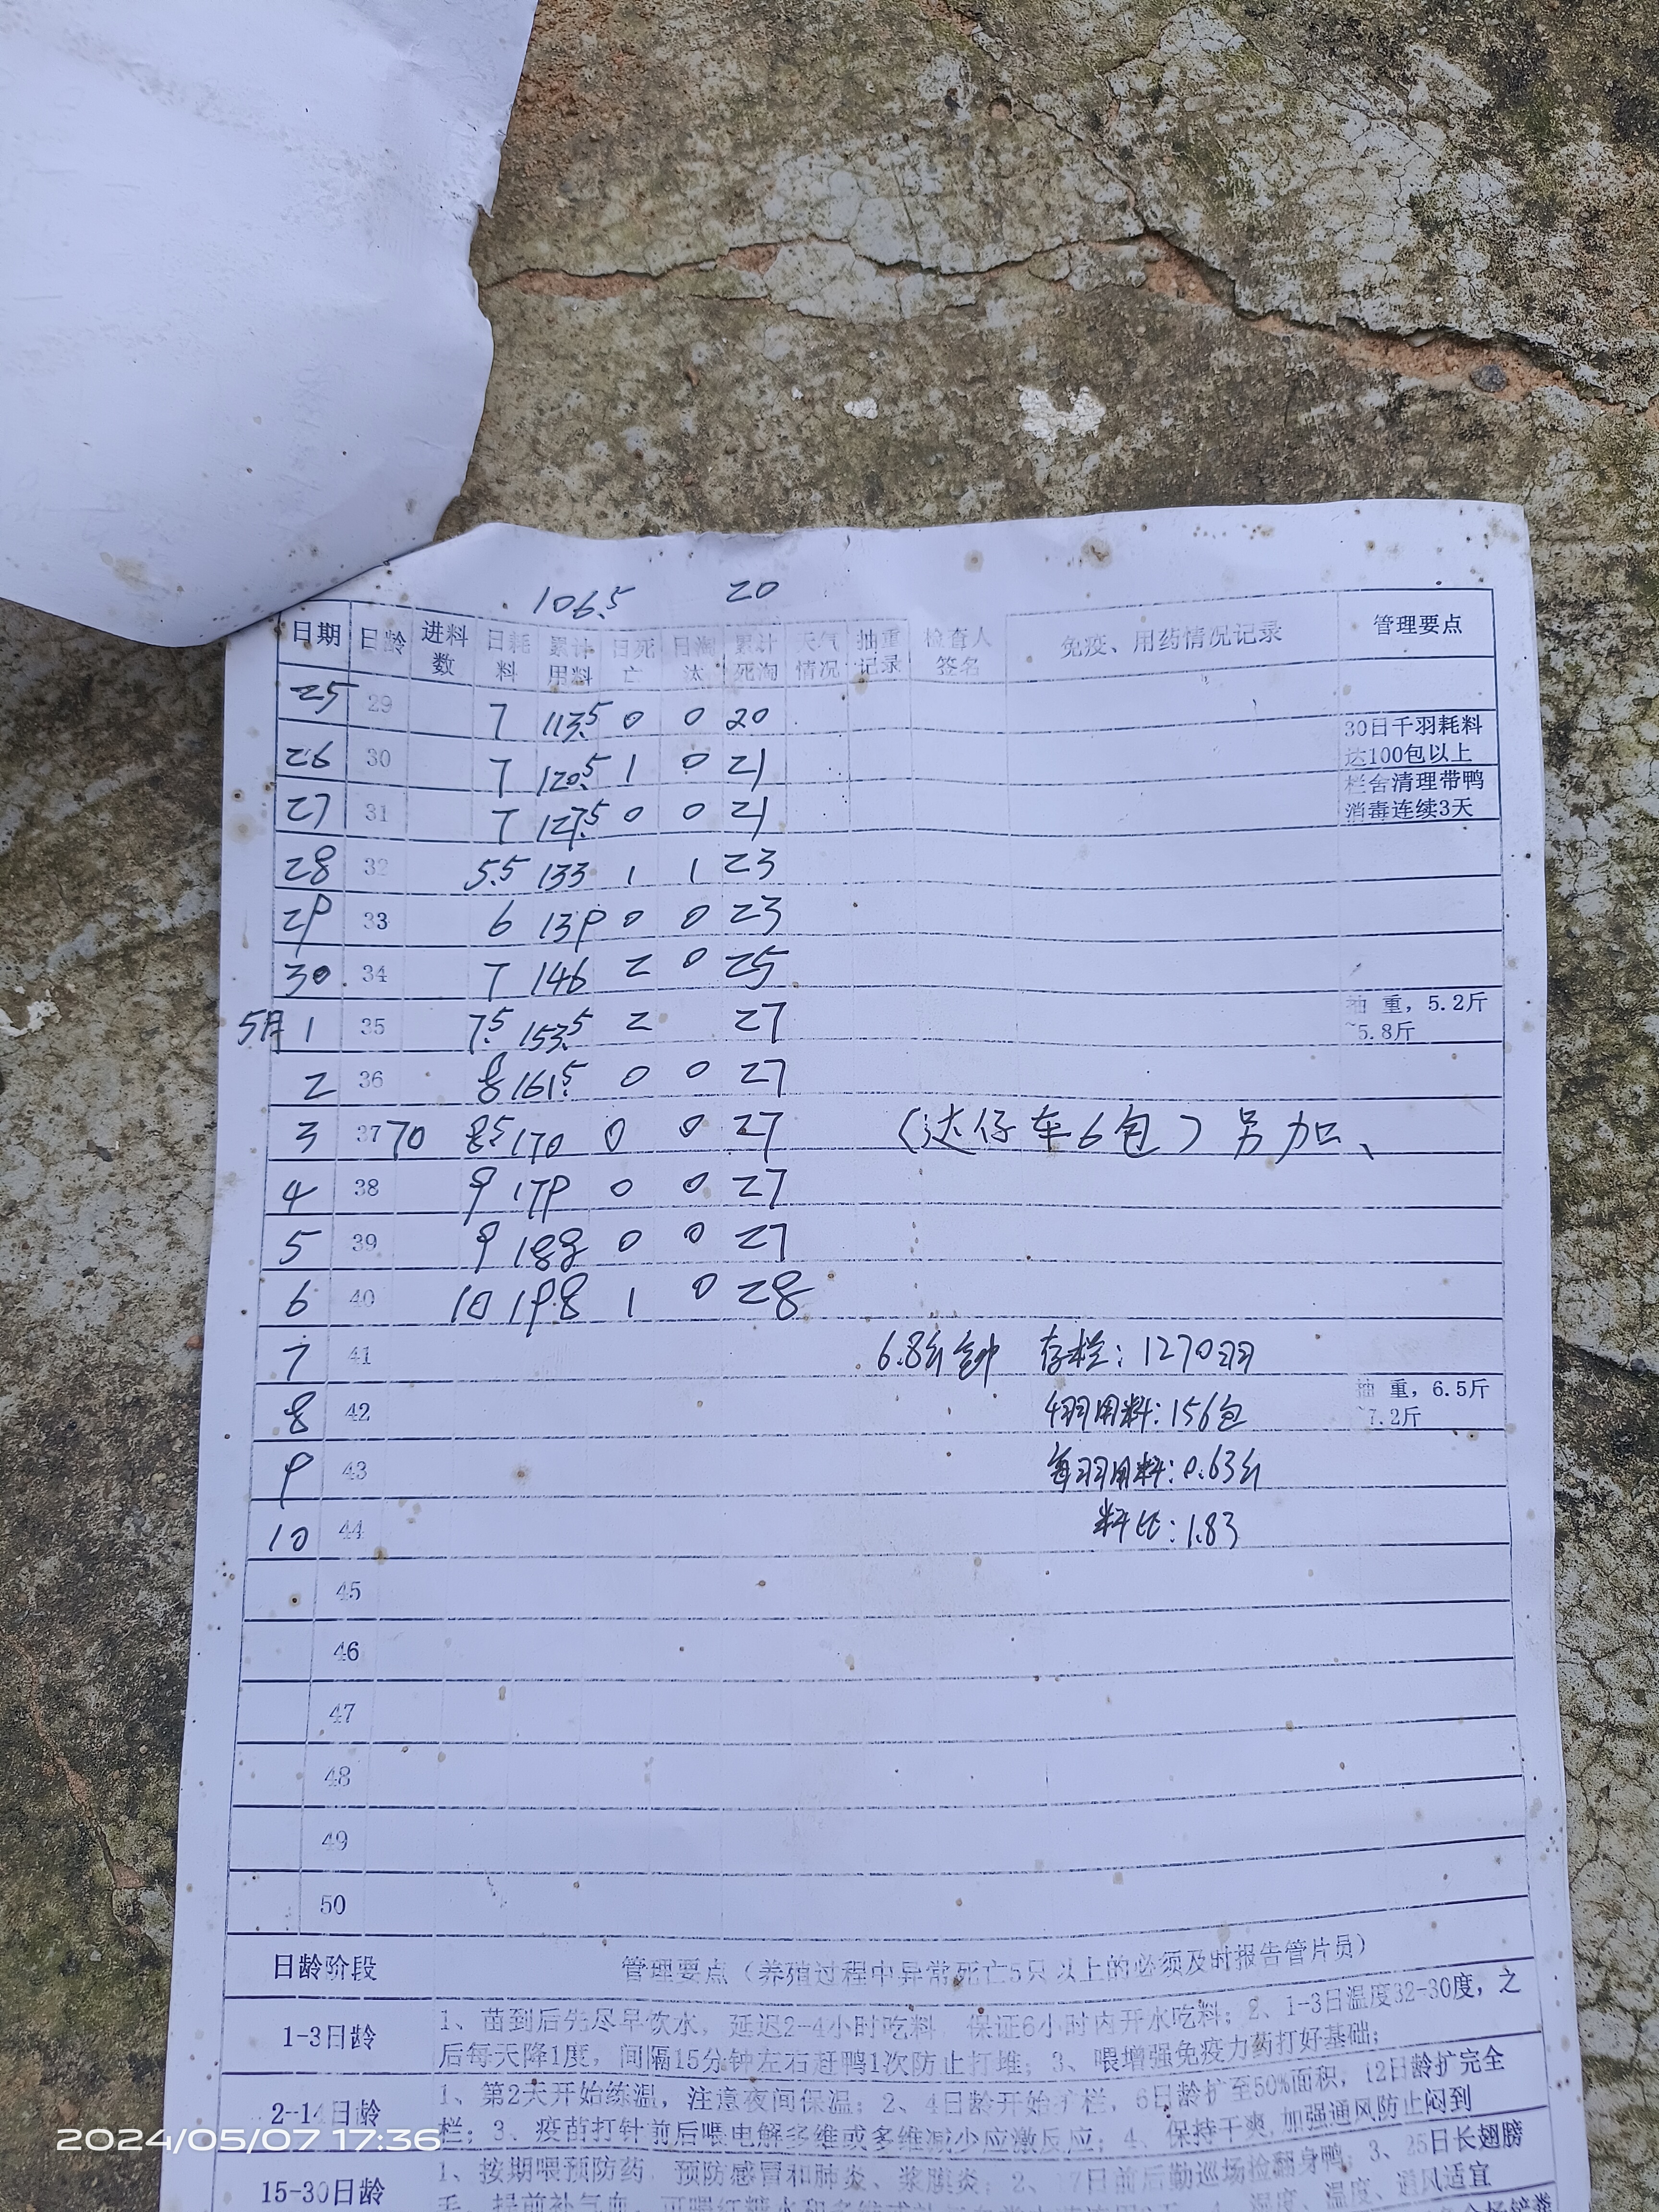 106.5 20
日期 日龄 进料数 日耗料 累计用料 日死亡 日淘汰 累计死淘 天气情况 抽重记录 检查人签名 免疫、用药情况记录 管理要点
25 29 7 113.5 0 0 20
26 30 7 120.5 1 0 21 30日千羽耗料达100包以上
27 31 7 127.5 0 0 21 栏舍清理带鸭消毒连续3天
28 32 5.5 133 1 1 23
29 33 6 139 0 0 23
30 34 7 146 2 0 25
5月1 35 7.5 153.5 2 27 抽 重,5.2斤~5.8斤
2 36 8 161.5 0 0 27
3 37 70 8.5 170 0 0 27 (达仔车6包)另加、
4 38 9 179 0 0 27
5 39 9 188 0 0 27
6 40 10 198 1 0 28
7 41 6.8斤 存栏:1270羽
8 42 用料:156包 抽 重,6.5斤~7.2斤
9 43 每羽用料:0.63斤
10 44 料比:1.83
45
46
47
48
49
50
日龄阶段 管理要点(养殖过程中异常死亡5只以上的必须及时报告管片员)
1-3日龄 1、苗到后先尽早饮水,延迟2-4小时吃料 保证6小时内开水吃料;2、1-3日温度32-30度,之
后每天降1度,间隔15分钟左右赶鸭1次防止打堆;3、喂增强免疫力药打好基础;
2-14日龄 1、第2天开始练温,注意夜间保温;2、4日龄开始扩栏,6日龄扩至50%面积,12日龄扩完全
栏;3、疫苗打针前后喂电解多维或多维减少应激反应;4、保持干爽,加强通风防止闷到
15-30日龄 1、按期喂预防药 预防感冒和肺炎、浆膜炎;2、 7日前后勤巡场检翻身鸭;3、25日长翅膀
湿度、温度、通风适宜
2024/05/07 17:36